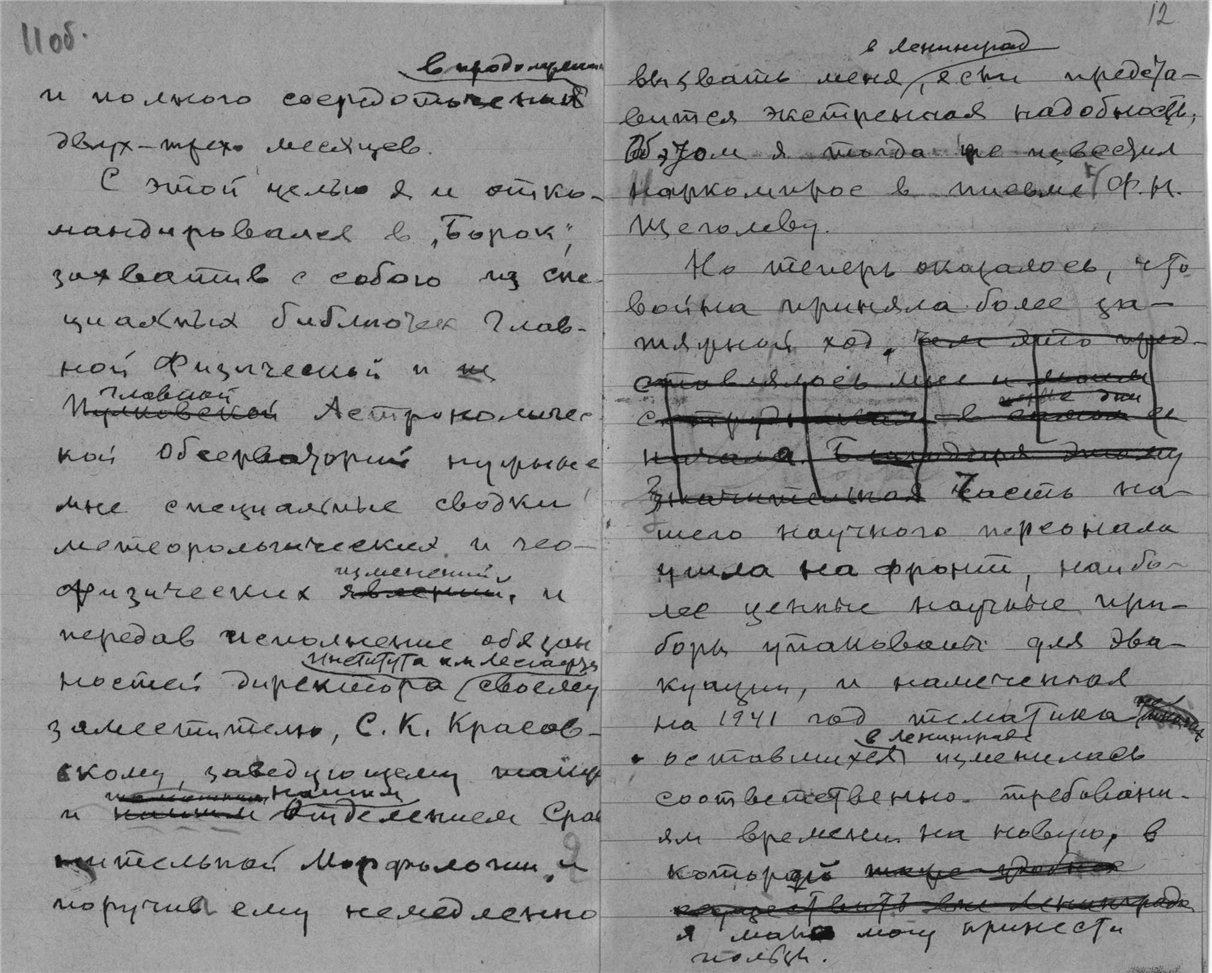 11 об.
в продолжении
и полного сосредоточения
двух-трех месяцев.
С этой целью я и отко-
мандировался в „Борок",
захватив с собою из спе-
циальных библиотек Глав-
ной Физической и
главной
Пулковской Астрономичес-
кой Обсерваторий нужные
мне специальные сводки
метеорологических и гео-
изменений
физических явлений, и
передав исполнение обязан
института им Лесгафта
ностей директора своему
заместителю, С. К. Красов-
скому, заведующему
нашим
и нашим Отделением Срав
нительной Морфологии, и
поручив ему немедленно
12
в Ленинград
вызвать меня, если предста-
вится экстренная надобность,
Об этом я тогда же известил
наркомпрос в письме Ф. Н.
Щеголеву.
Но теперь оказалось, что
война приняла более за-
тяжной ход, чем это пред-
ставлялось мне и моим
сотрудникам в ее
первые дни
начала. Благодаря этому
Значительная часть на-
шего научного персонала
ушла на фронт, наибо-
лее ценные научные при-
боры упакованы для эва-
куации, и намеченная
на 1941 год тематика
в Ленинграде
оставшихся изменилась
соответственно требовани-
ям времени на новую, в
которой
осуществить вне Ленинграда
я мало могу принести
пользы.